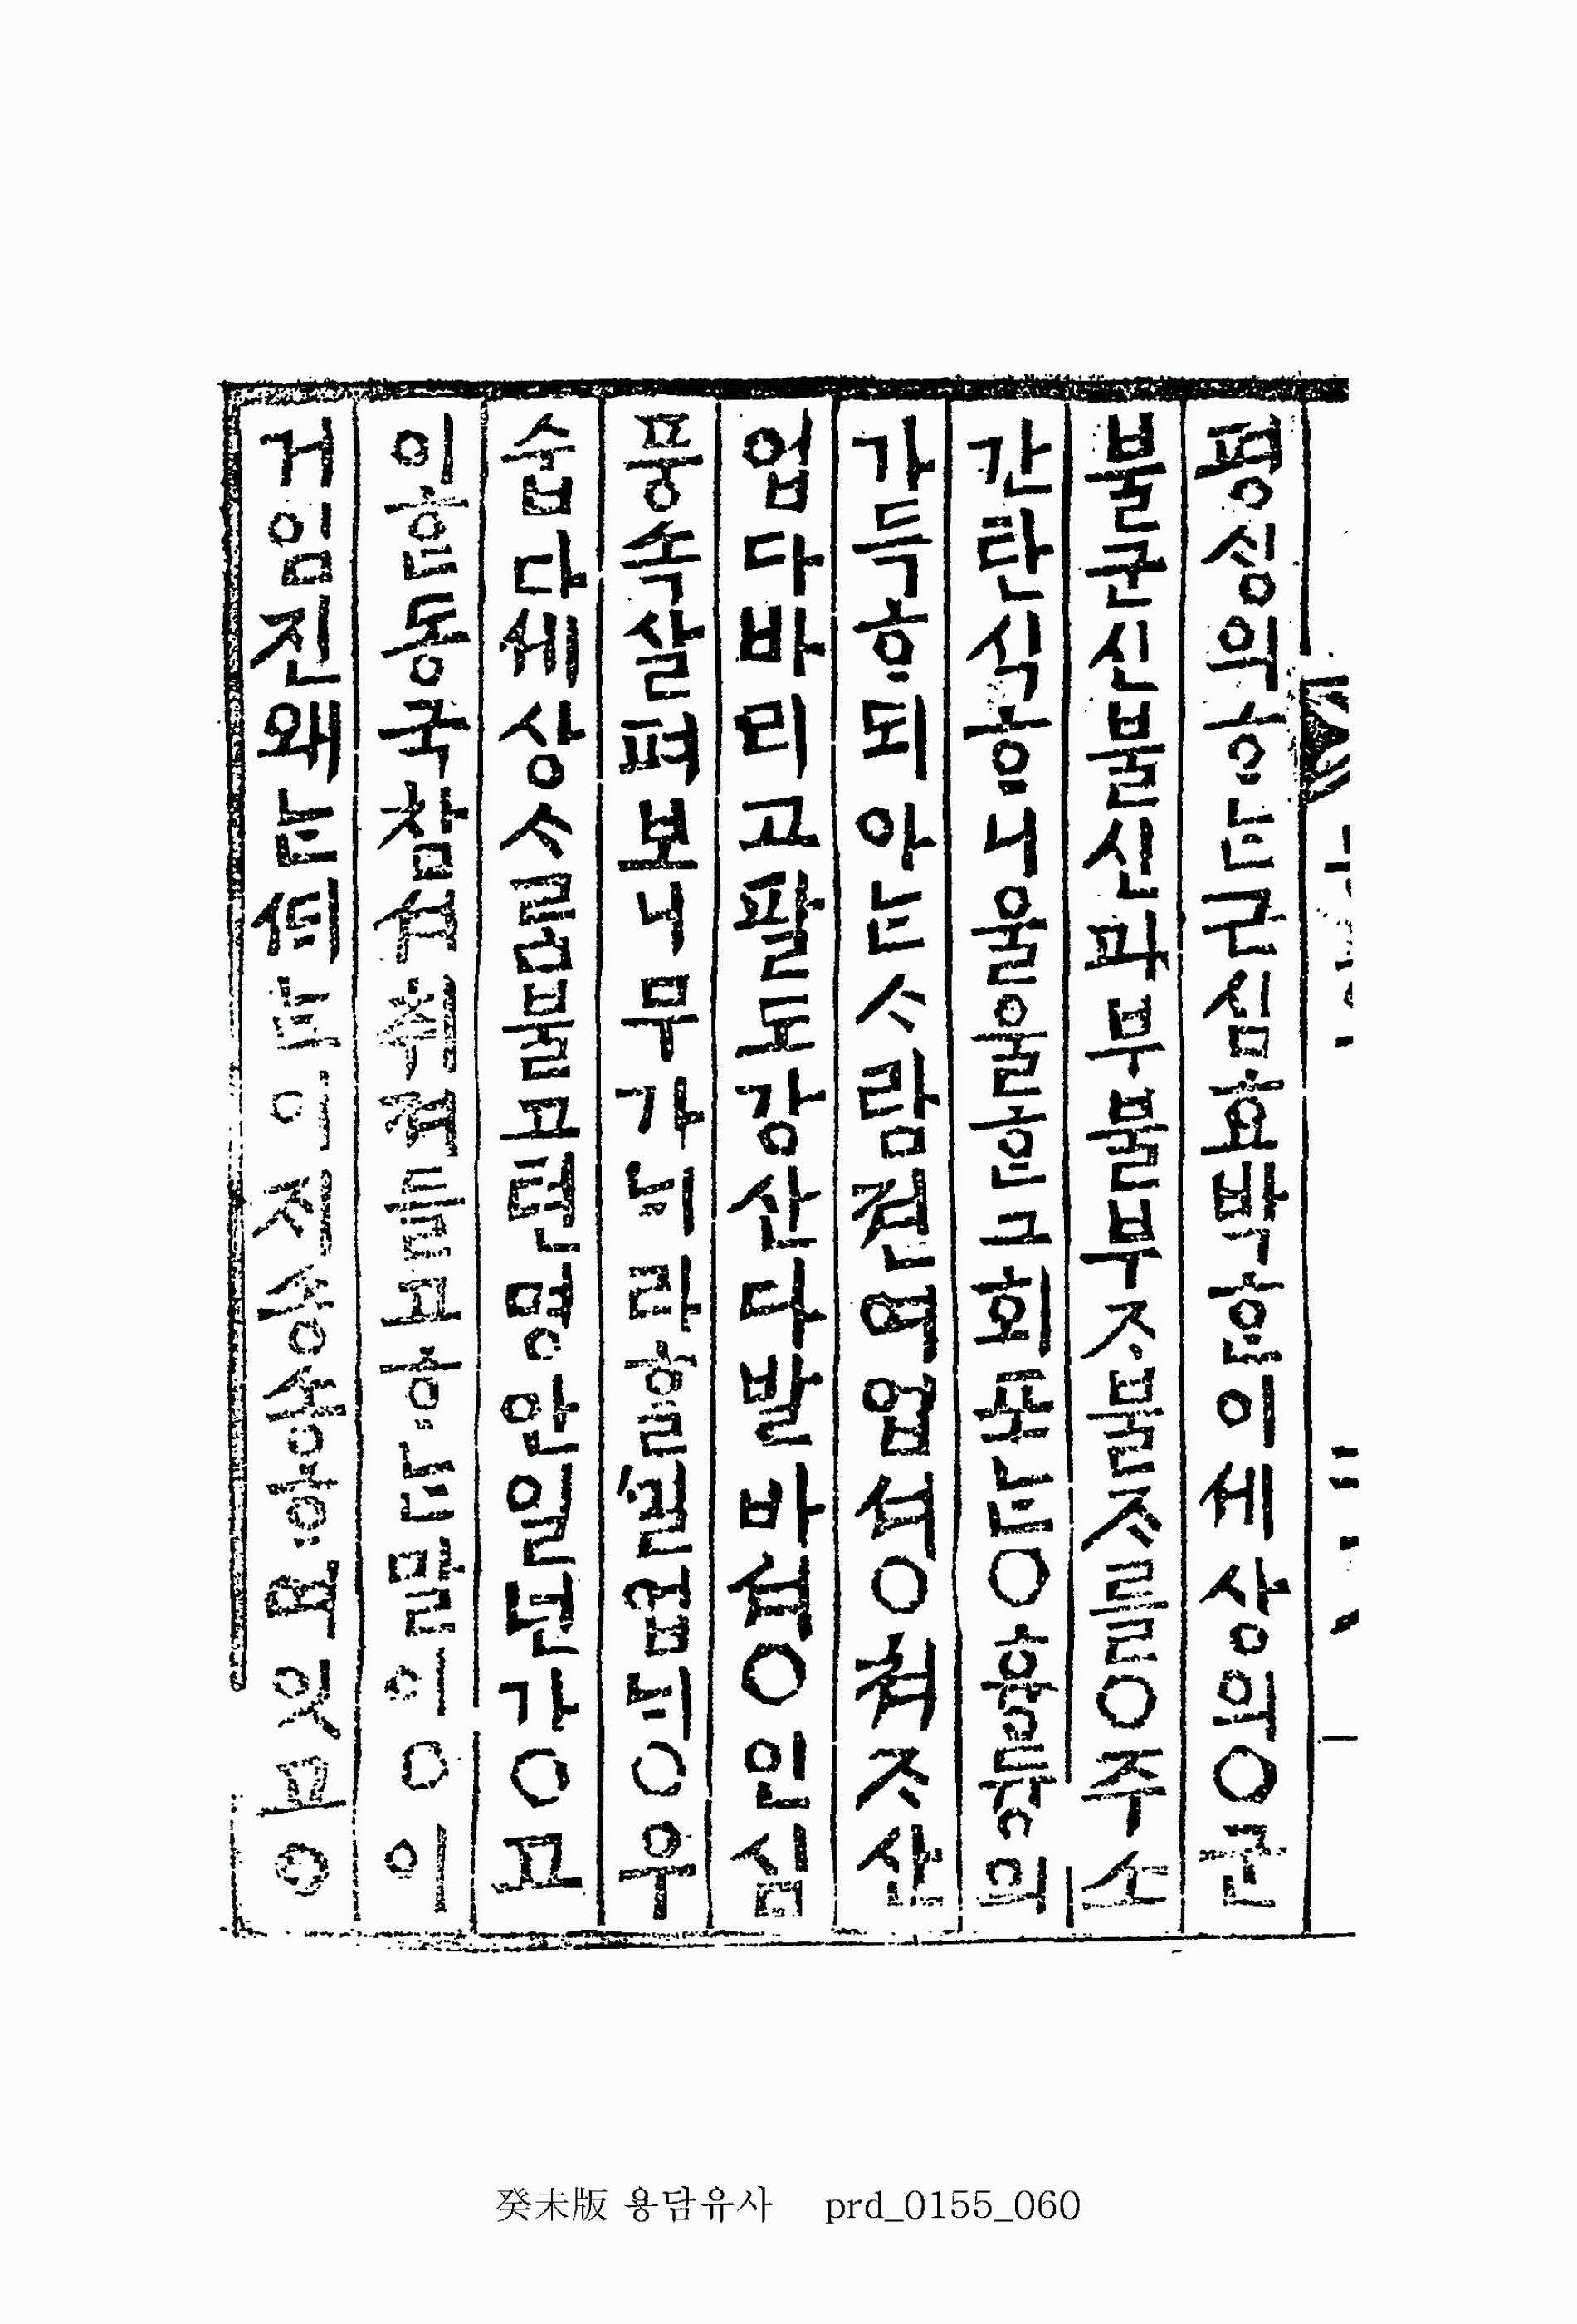 평싱의ᄒᆞ는근심효박ᄒᆞᆫ이세상의○군
불군신불신과부불부ᄌᆞ불ᄌᆞ를○주소
간탄식ᄒᆞ니울울ᄒᆞᆫ그회포는○흉듕의
가득ᄒᆞ되아는ᄉᆞ람젼여업셔○쳐ᄌᆞ산
업다바리고팔도강산다발바셔○인심
풍속살펴보니무가ᄂᆡ라ᄒᆞᆯᄭᅵᆯ업ᄂᆡ○우
숩다세상ᄉᆞ름불고텬명안일년가○고
이ᄒᆞᆫ동국참셔츄켜들고ᄒᆞ는말이○이
거임진왜는ᄯᆡ는이지송송ᄒᆞ여잇고○
癸未版 용담유사 prd_0155_060